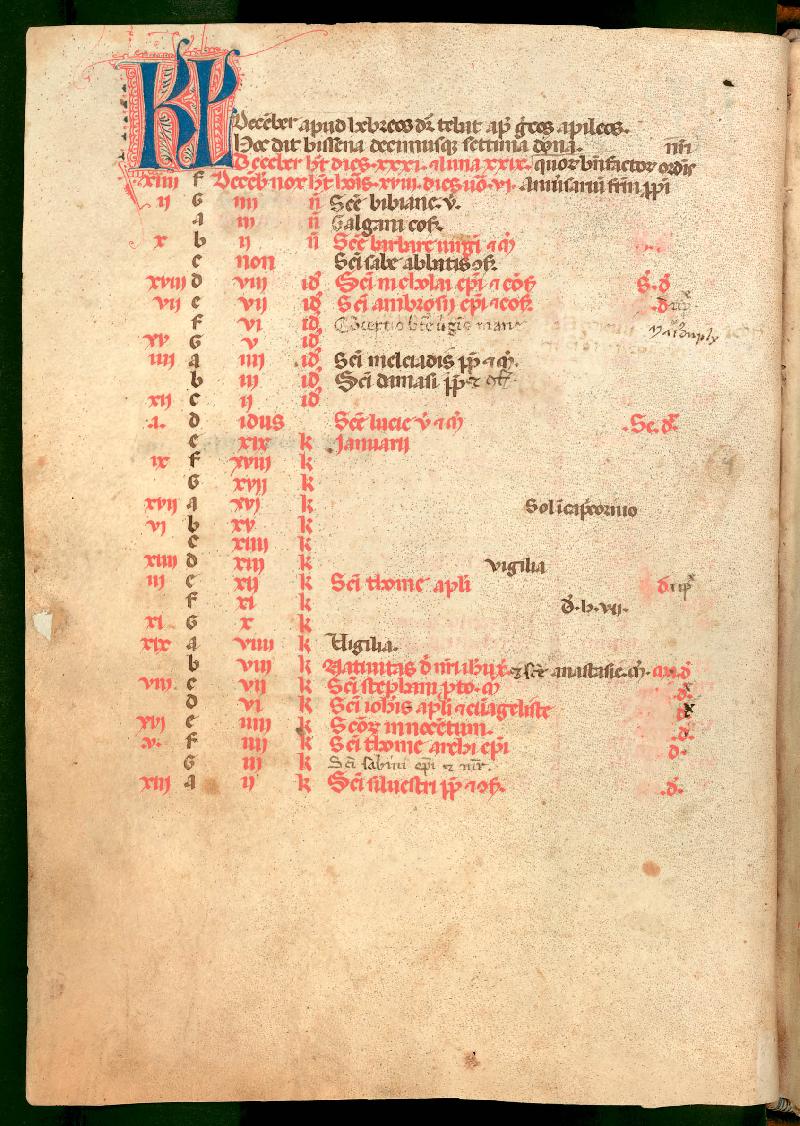 KL December apud hebreos dr̄ tebit ap̄ grecos apileos.
Hoc dat bissena decimusq̄ septima dena. nr̄i
December ht̄ dies .xxxi. ⁊ luna xxix. quor bn̄factor ordis
xiiii f Decēb nox ht̄ hōis .xviii. dies uō .vi.
ii G iiii n̄ Scē bibiane .v̄.
a iii n̄ Galgani cōf.
x b ii n̄ Scē barbare uirgī ⁊ m̄
c non Scī sabe abbatis ⁊ cf.
xviii d viii id Scī nicholai ep̄i ⁊ cōf S. d
vii e vii id Scī ambrosii ep̄i ⁊ cōf. d
f vi id Cōceptio bt̄e uirgīs marie
xv G v id
iiii a iiii id Scī melciadis pp̄ ⁊ m̄.
b iii id Scī damasi pp̄ ⁊ cf.
xii c ii id
a. d idus Scē lucie v̄ ⁊ m̄ .Sc. d.
e xix k Januarii
ix f xviii k
G xvii k
xvii a xvi k Sol ī capcornio
vi b xv k
c xiiii k
xiiii d xiii k vigilia
iii e xii k Scī thome apl̄i d
f xi k d. b. vii.
xi G x k
xix a viiii k Uigilia.
b viii k Natiuitas d n̄ri ihū xp̄. ⁊ scē anastasie. m̄. m. d
viii. c vii k Scī stephani p̄to. m̄ d.
d vi k Scī ioh̄is apl̄i ⁊ euāgeliste
xvi e iiiii k Scōr innocētum. d.
v. f iiii k Scī thome archi ep̄i d.
G iii k Scī sabini ep̄i ⁊ mr̄.
xiii a ii k Scī siluestri pp̄ ⁊ cf. .d.